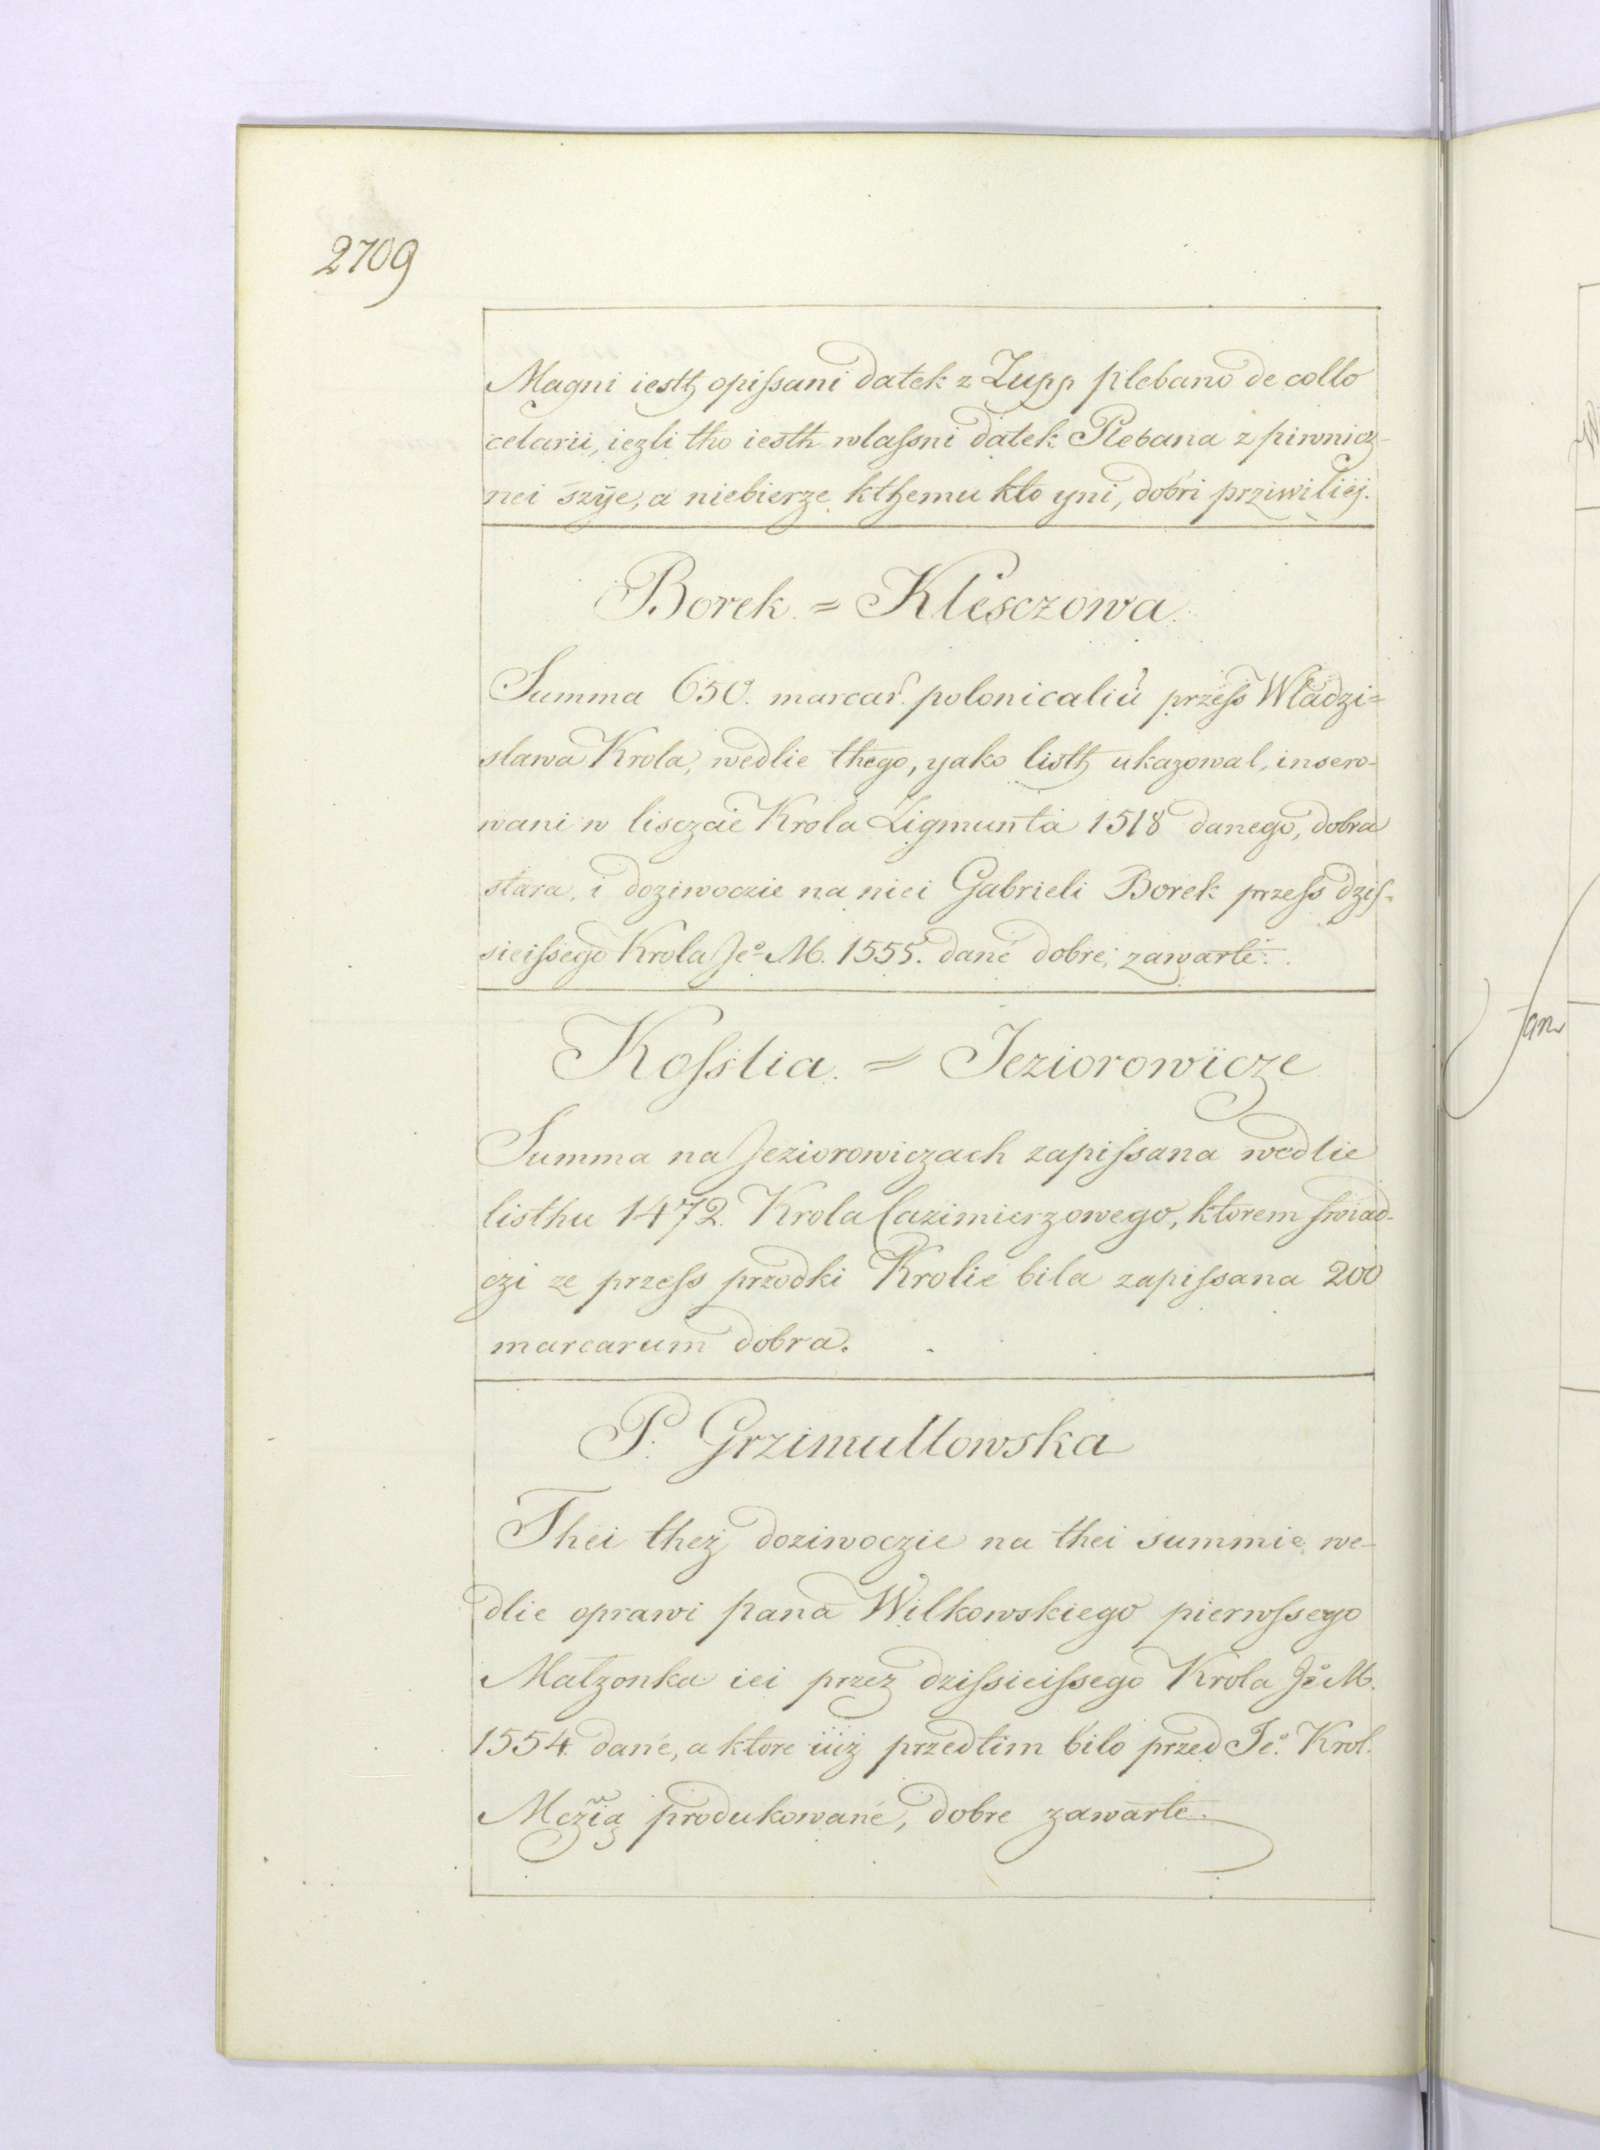 2709
Magni iesth opissani datek z Zupp plebano de collo
celarii, iezli tho iesth wlassni datek Plebana z piwnicz-
nei szÿe, a niebierze kthemu kto yni, dobri prziwiliÿ.
Borek. = Klesczowa.
Summa 650. marcar. polonicaliũ przess Wladzi=
slawa Krola, wedlie thego, yako listh ukazowal, insero-
wani w lisczcie Krola Zigmunta 1518 danego, dobra
stara, i doziwoczie na niei Gabrieli Borek przess dzis-
sieissego Krola Jeº M. 1555. dané dobre, zawarte.
Kosslia. = Jeziorowicze
Summa na Jeziorowiczach zapissana wedlie
listhu 1472. Krola Cazimierzowego, ktorem swiad-
czi ze przess przodki Krolié bila zapissana 200
marcarum dobra.
P. Grzimultowska
Thei theż doziwoczie na thei summie we-
dlie oprawi pana Wilkowskiego pierwssego
Malzonka iei przez dzissieissego Krola Jº M.
1554. dané, a ktore iiiż przedtim bilo przed Jeº. Krol.
Mczią produkowané, dobre zawarte.
Jan